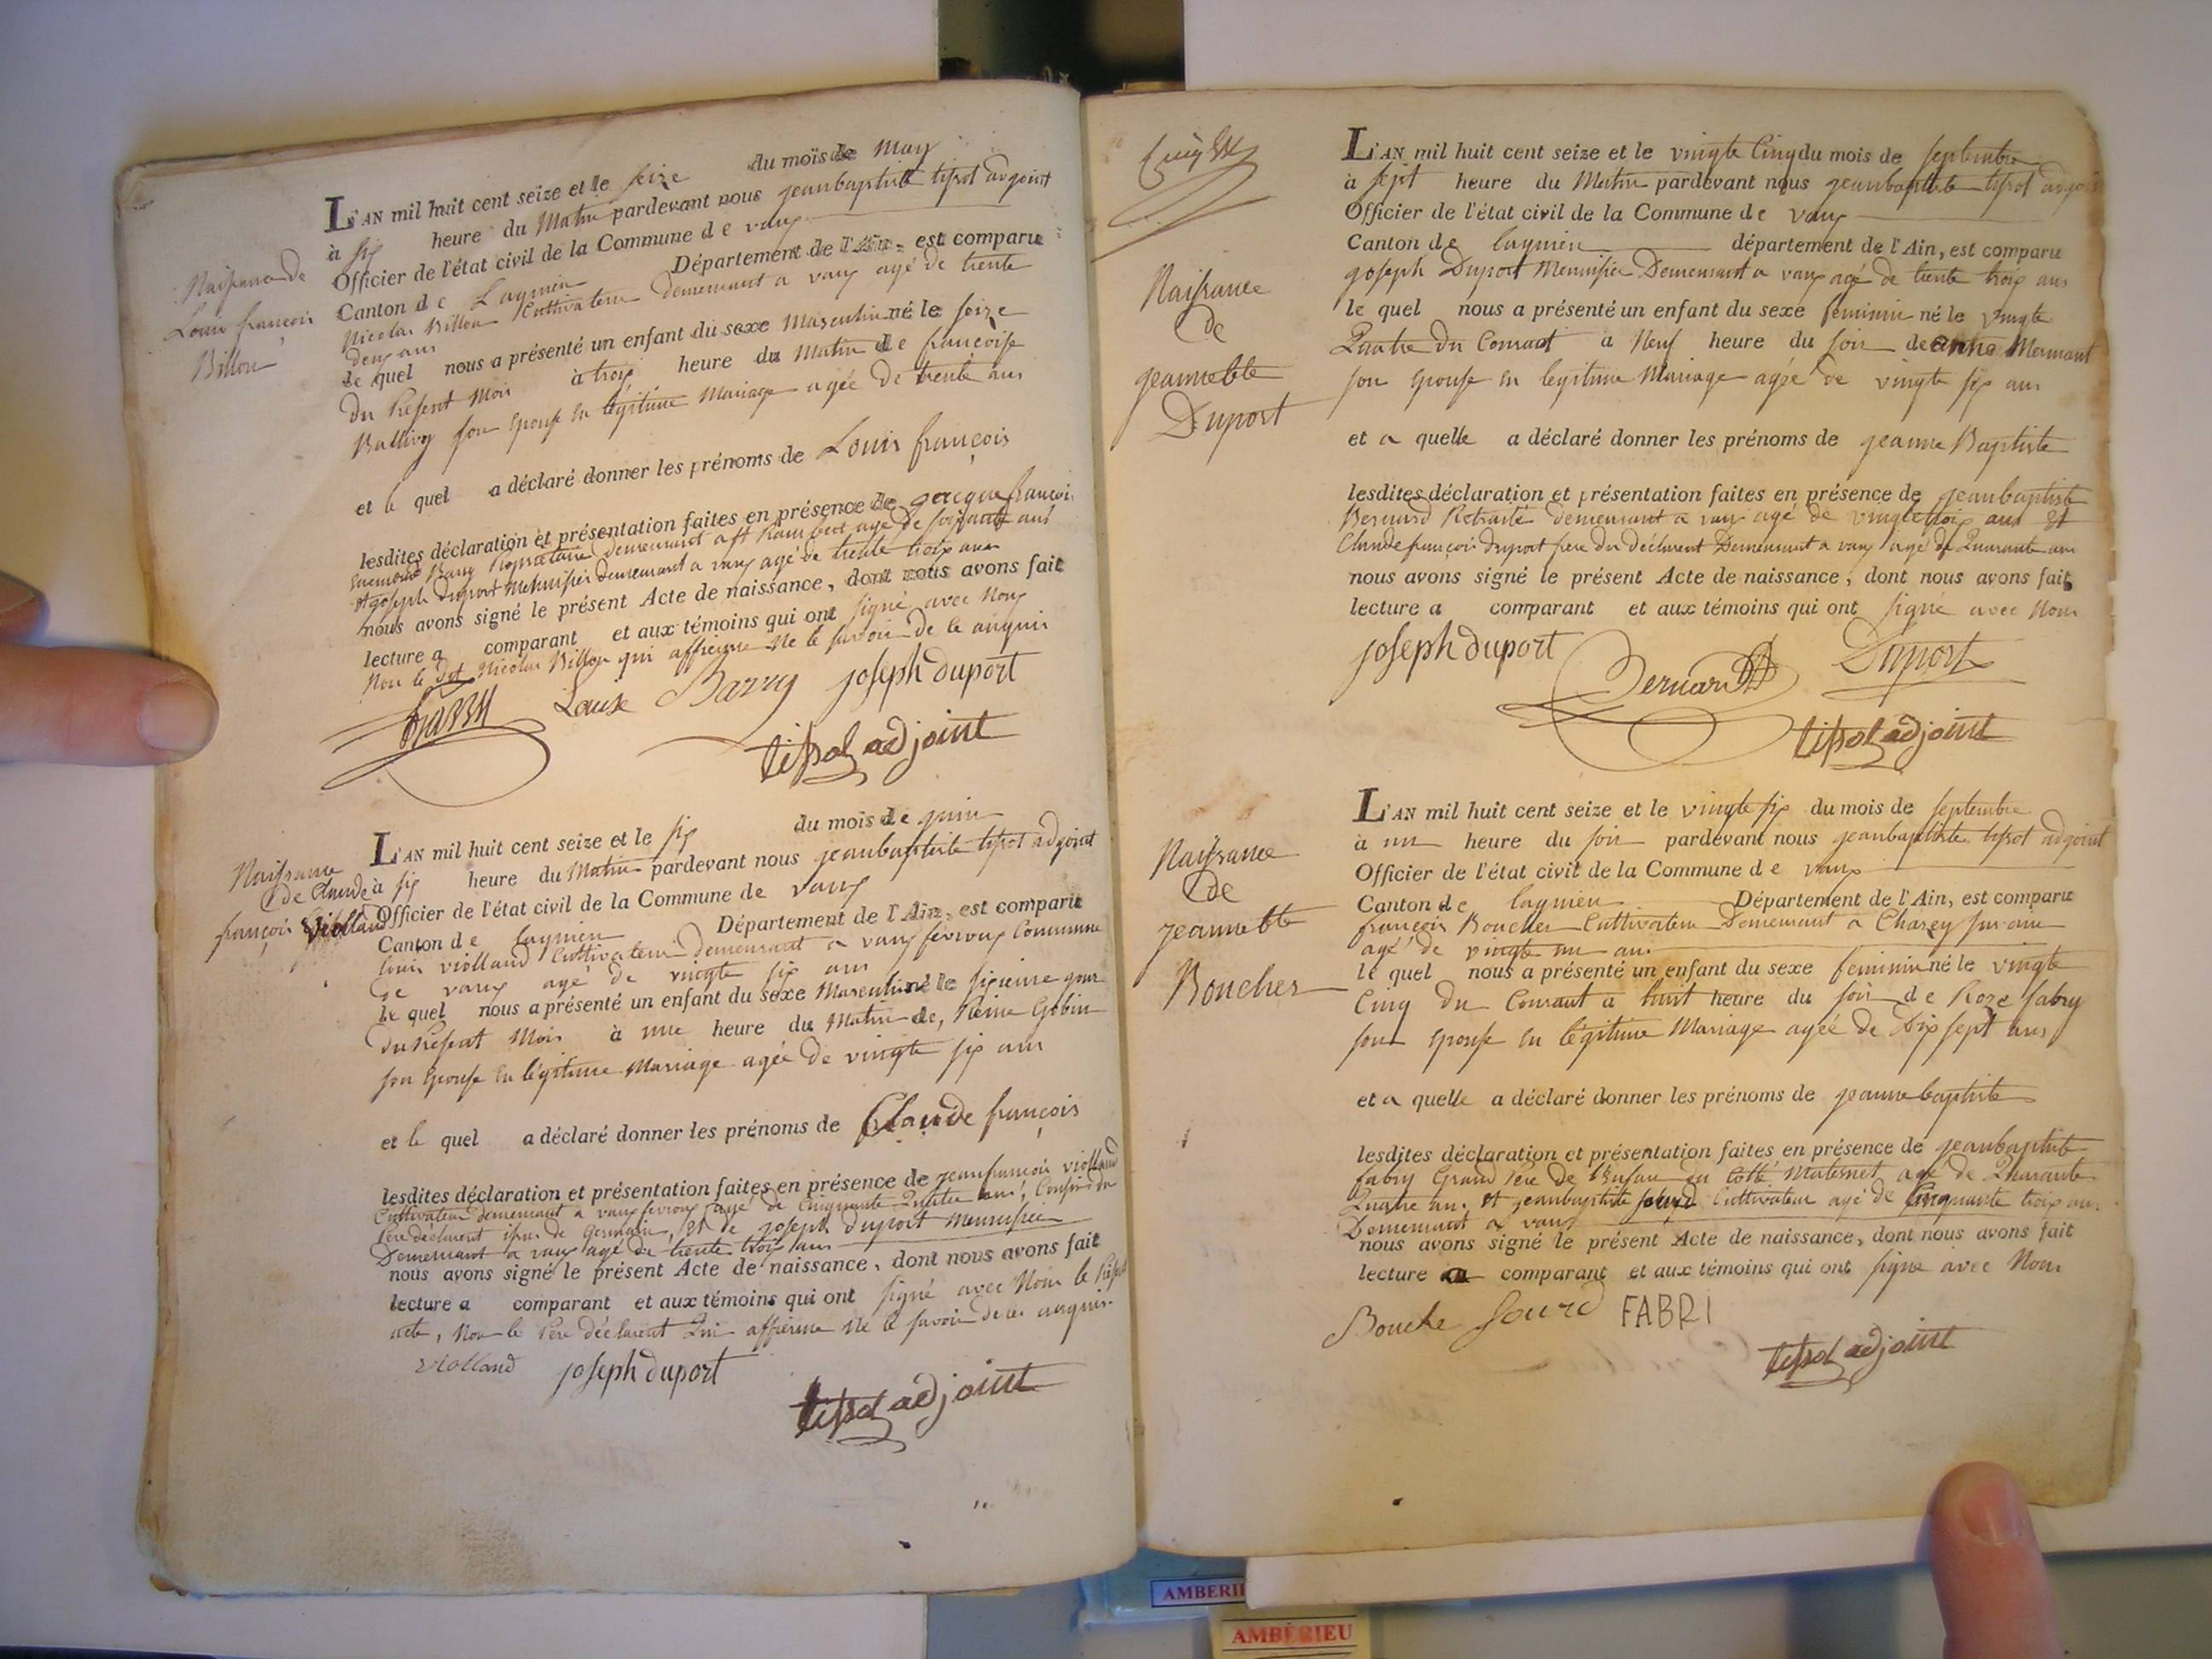 Naissance de
Louis françois
Billon
L'AN mil huit cent seize et le seize du mois de may
à six heure du Matin pardevant nous jeanbaptiste tissot adjoint
Officier de l'état civil de la Commune de vaux
Canton de Lagnieu Département de l'Ain, est comparu
Nicolas Billon Cultivateur demeurant a vaux agé de trente
deux ans
le quel nous a présenté un enfant du sexe Masculin né le seize
du Présent Mois à trois heure du Matin de françoise
son Epouse en légitime Mariage agée de trente ans
et le quel a déclaré donner les prénoms de Louis françois
lesdites déclaration et présentation faites en présence de jacque françois
Barry Propriétaire demeurant a st Rambert agé de soixante ans
et joseph duport Menuisier demeurant a vaux agé de trente trois ans
nous avons signé le présent Acte de naissance, dont nous avons fait
lecture a comparant et aux témoins qui ont signé avec Nous
Non le dit Nicolas Billon qui affirme Ne le savoir de ce enquis
Barry Louise Barry joseph duport
tissot adjoint
Naissance
de Claude
françois Violland
L'AN mil huit cent seize et le six du mois de juin
à six heure du Matin pardevant nous jeanbaptiste tissot adjoint
Officier de l'état civil de la Commune de vaux
Canton de Lagnieu Département de l'Ain, est comparu
louis violland Cultivateur demeurant a vaux fevroux Commune
de vaux agé de vingte six ans
le quel nous a présenté un enfant du sexe Masculin né le sixieme jour
du Présent Mois à une heure du Matin de, Pierrine Gobin
son Epouse en légitime Mariage agée de vingte six ans
et le quel a déclaré donner les prénoms de Claude françois
lesdites déclaration et présentation faites en présence de jeanfrançois violland
Cultivateur demeurant a vaux fevroux agé de Cinquante Quattre ans, Cousin du
Pere déclarent issus de Germain, et de joseph duport Menuisier
Demeurant a vaux agé de trente trois ans
nous avons signé le présent Acte de naissance, dont nous avons fait
lecture a comparant et aux témoins qui ont signé avec Nous le présent
acte, Non le Pere déclarent Qui affirme Ne le savoir de ce enquis
violland joseph duport
tissot adjoint
Naissance
de
jeannette
Duport
L'AN mil huit cent seize et le vingte Cinq du mois de septembre
à sept heure du Matin pardevant nous jeanbaptiste tissot adjoint
Officier de l'état civil de la Commune de vaux
Canton de lagnieu département de l'Ain, est comparu
joseph Duport Menuisier Demeurant a vaux agé de trente trois ans
le quel nous a présenté un enfant du sexe feminin né le vingte
Quatre du Courant a Neuf heure du soir de anne Mermant
son Epouse en legitime Mariage agée de vingte six ans
et a quelle a déclaré donner les prénoms de jeanne Baptiste
lesdites déclaration et présentation faites en présence de jeanbaptiste
Bernard Retraité demeurant a vaux agé de vingte trois ans Et
Claudefrançois duport frere du déclarent Demeurant a vaux agé de Quarante ans
nous avons signé le présent Acte de naissance, dont nous avons fait
lecture a comparant et aux témoins qui ont signé avec Nous
joseph duport Bernard Duport
tissot adjoint
Naissance
de
jeannette
Boucher
L'AN mil huit cent seize et le vingte six du mois de septembre
à un heure du soir pardevant nous jeanbaptiste tissot adjoint
Officier de l'état civil de la Commune de vaux
Canton de lagnieu Département de l'Ain, est comparu
françois Boucher Cultivateur Demeurant a Chazey sur ain
agé de vingte un ans
le quel nous a présenté un enfant du sexe feminin né le vingte
Cinq du Courant a huit heure du soir de Roze fabry
son Epouse en légitime Mariage agée de Dix sept ans
et a quelle a déclaré donner les prénoms de jeannebaptiste
lesdites déclaration et présentation faites en présence de jeanbaptiste
fabry Grand Pere de l'Enfan du Cotté Maternet agé de Quarante
Quatre ans. Et jeanbaptiste sourd Cultivateur agé de Cinquante trois ans
Demeurant a vaux
nous avons signé le présent Acte de naissance, dont nous avons fait
lecture au comparant et aux témoins qui ont signé avec Nous
Bouche Sourd FABRI
tissot adjoint
AMBERI
AMBÉRIEU